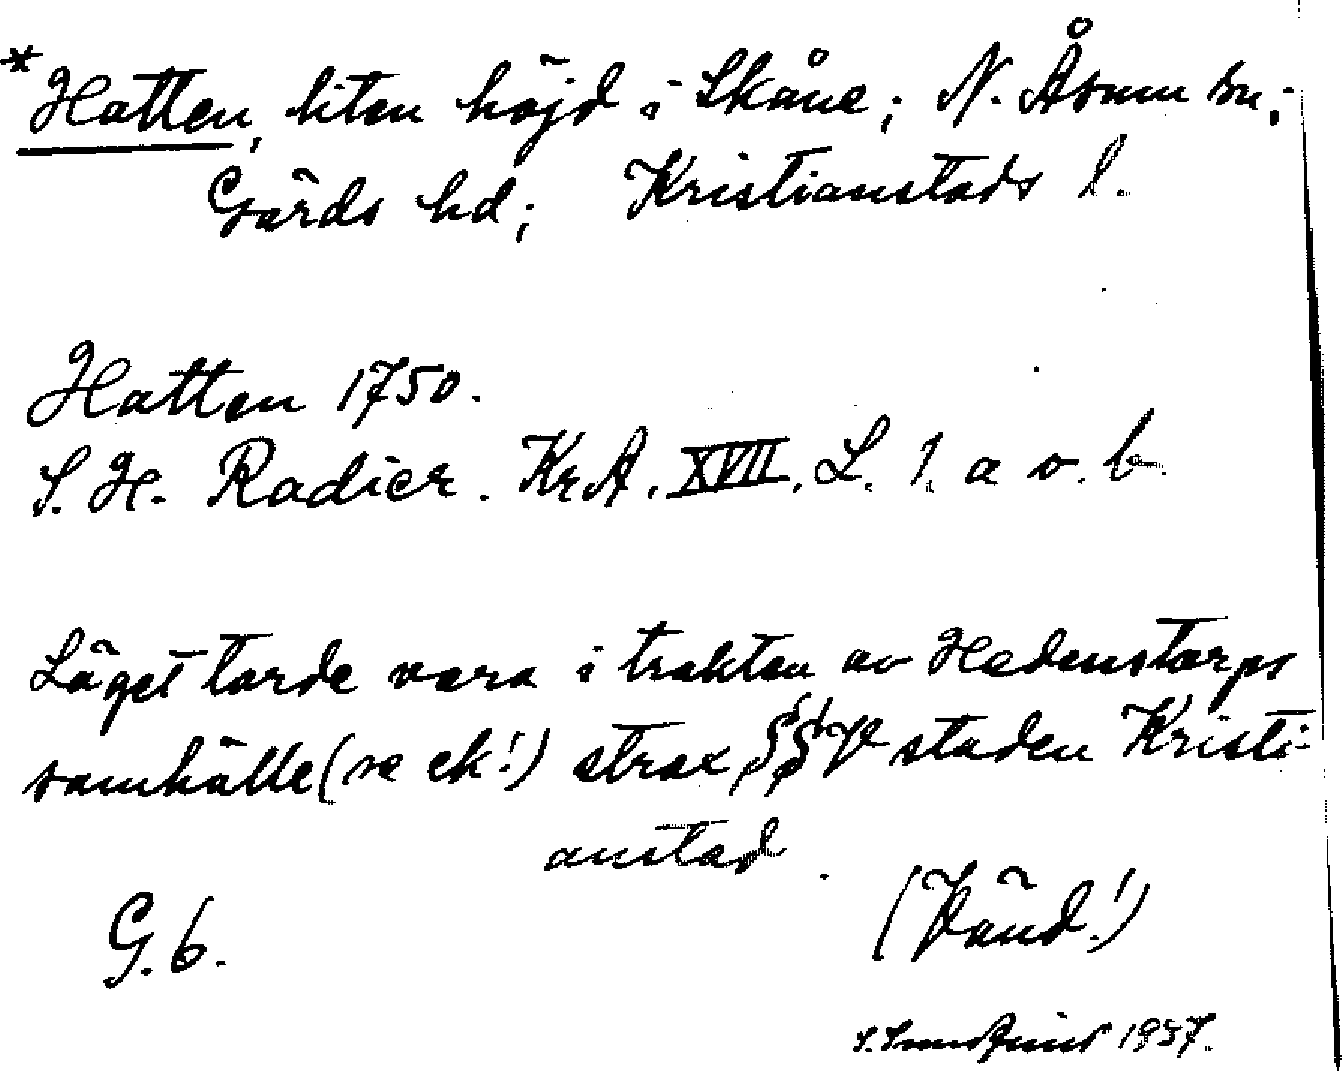 *Hatten, liten höjd i Skåne; N. Åsum sn;
Gärds hd; Kristianstads l.
Hatten 1750.
S. H. Radier. Kr.A. XVII. L. 1. a o. b
Läget torde vara i trakten av Hedenstorps
samhälle (se ek!) strax staden Kristi-
anstad.
G. 6. (Vänd!)
1937.